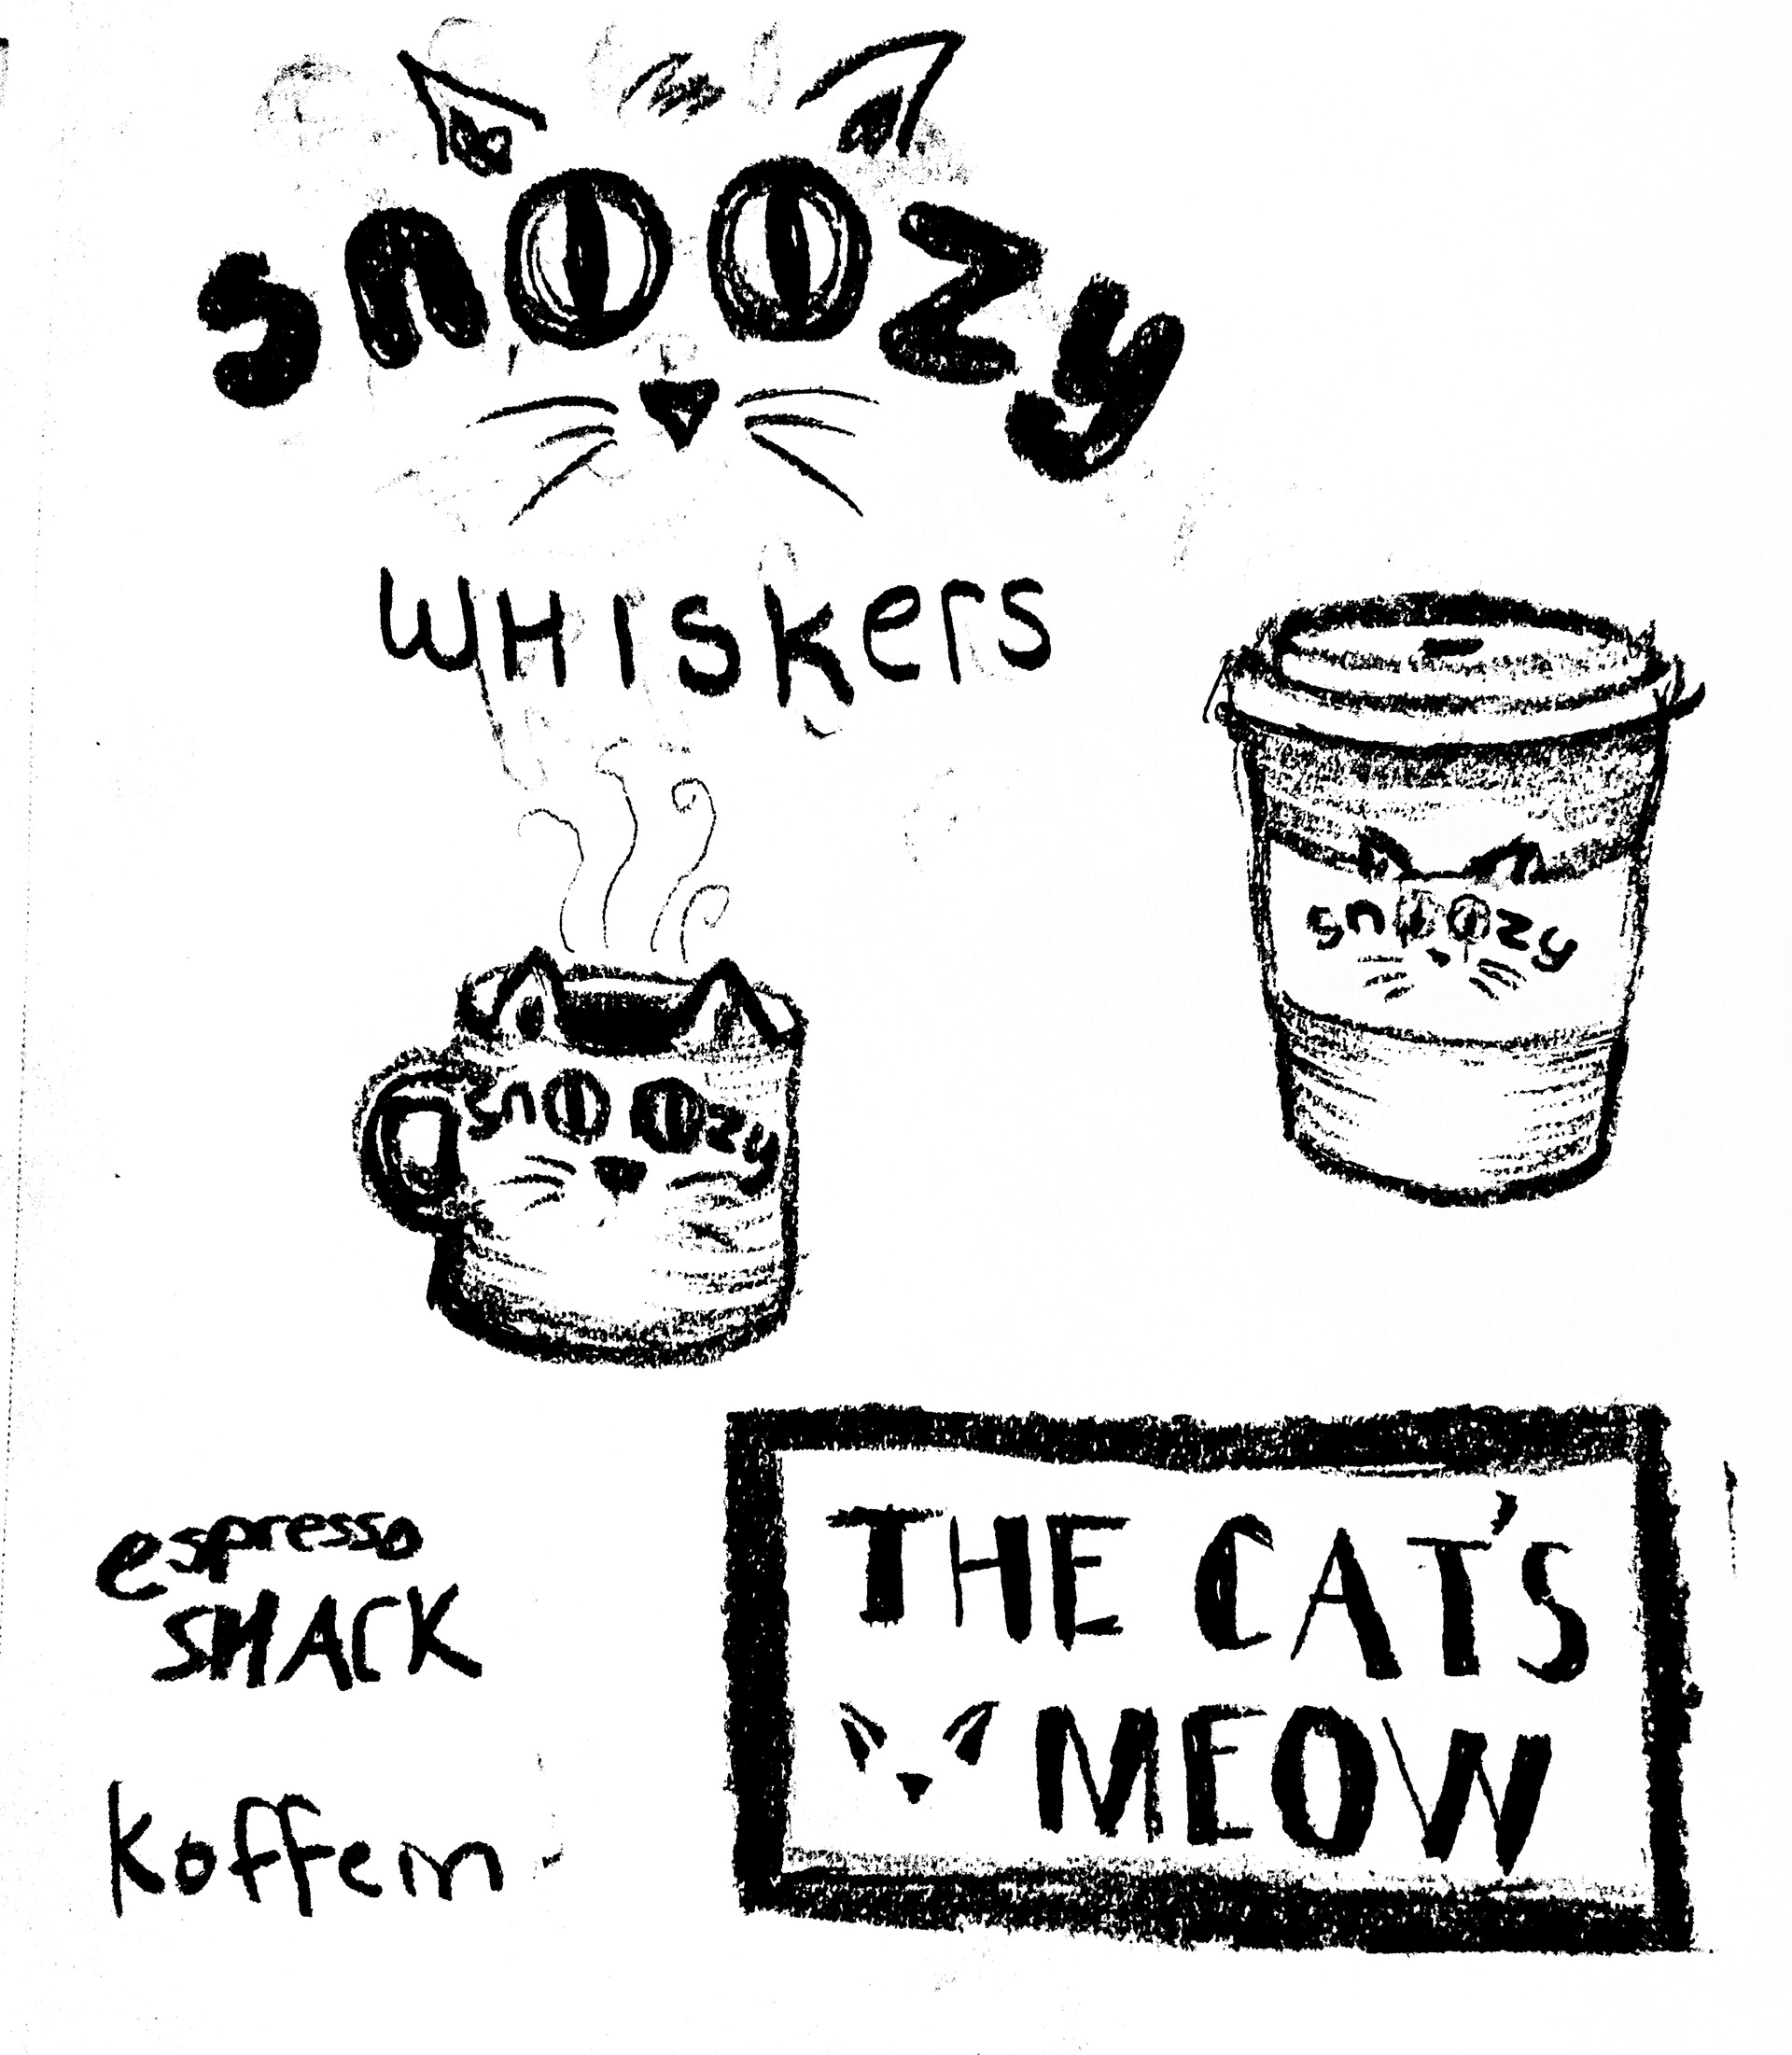 snoozy
WHISkers
snoozy
snoozy
espresso
SMACK
THE CAT'S
MEOW
Koffein